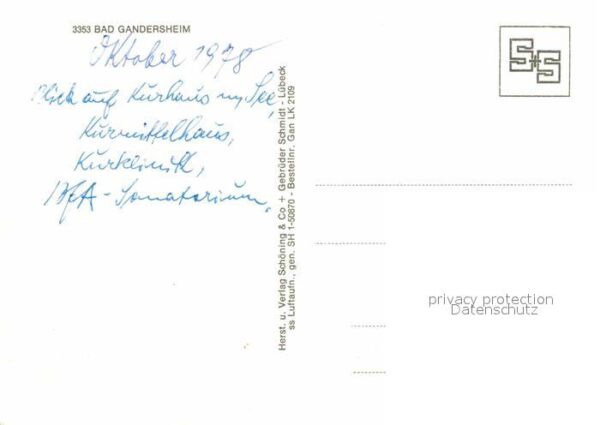 3353 BAD GANDERSHEIM
Oktober 1978
Blick auf Kurhaus m. See,
Kurmittelhaus,
Kurklinik,
BfA-Sanatorium,
Herst. u. Verlag Schöning & Co + Gebrüder Schmidt - Lübeck
ss Luftaufn., gen. SH 1-50870 - Bestellnr. Gan LK 2109
S+S
privacy protection
Datenschutz